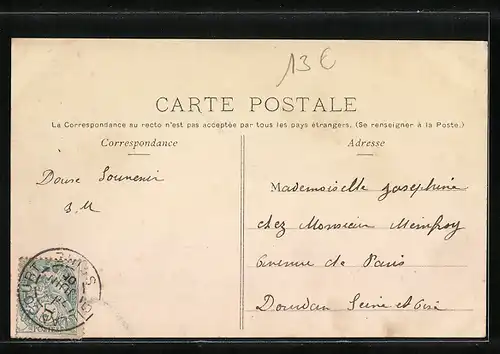 13€
CARTE POSTALE
La Correspondance au recto n'est pas acceptée par tous les pays étrangers. (Se renseigner à la Poste.)
Correspondance
Adresse
Douse Souvenir
J. M
Mademoiselle Josephine
chez Monsieur
avenue de Paris
Dourdan Seine et Oise